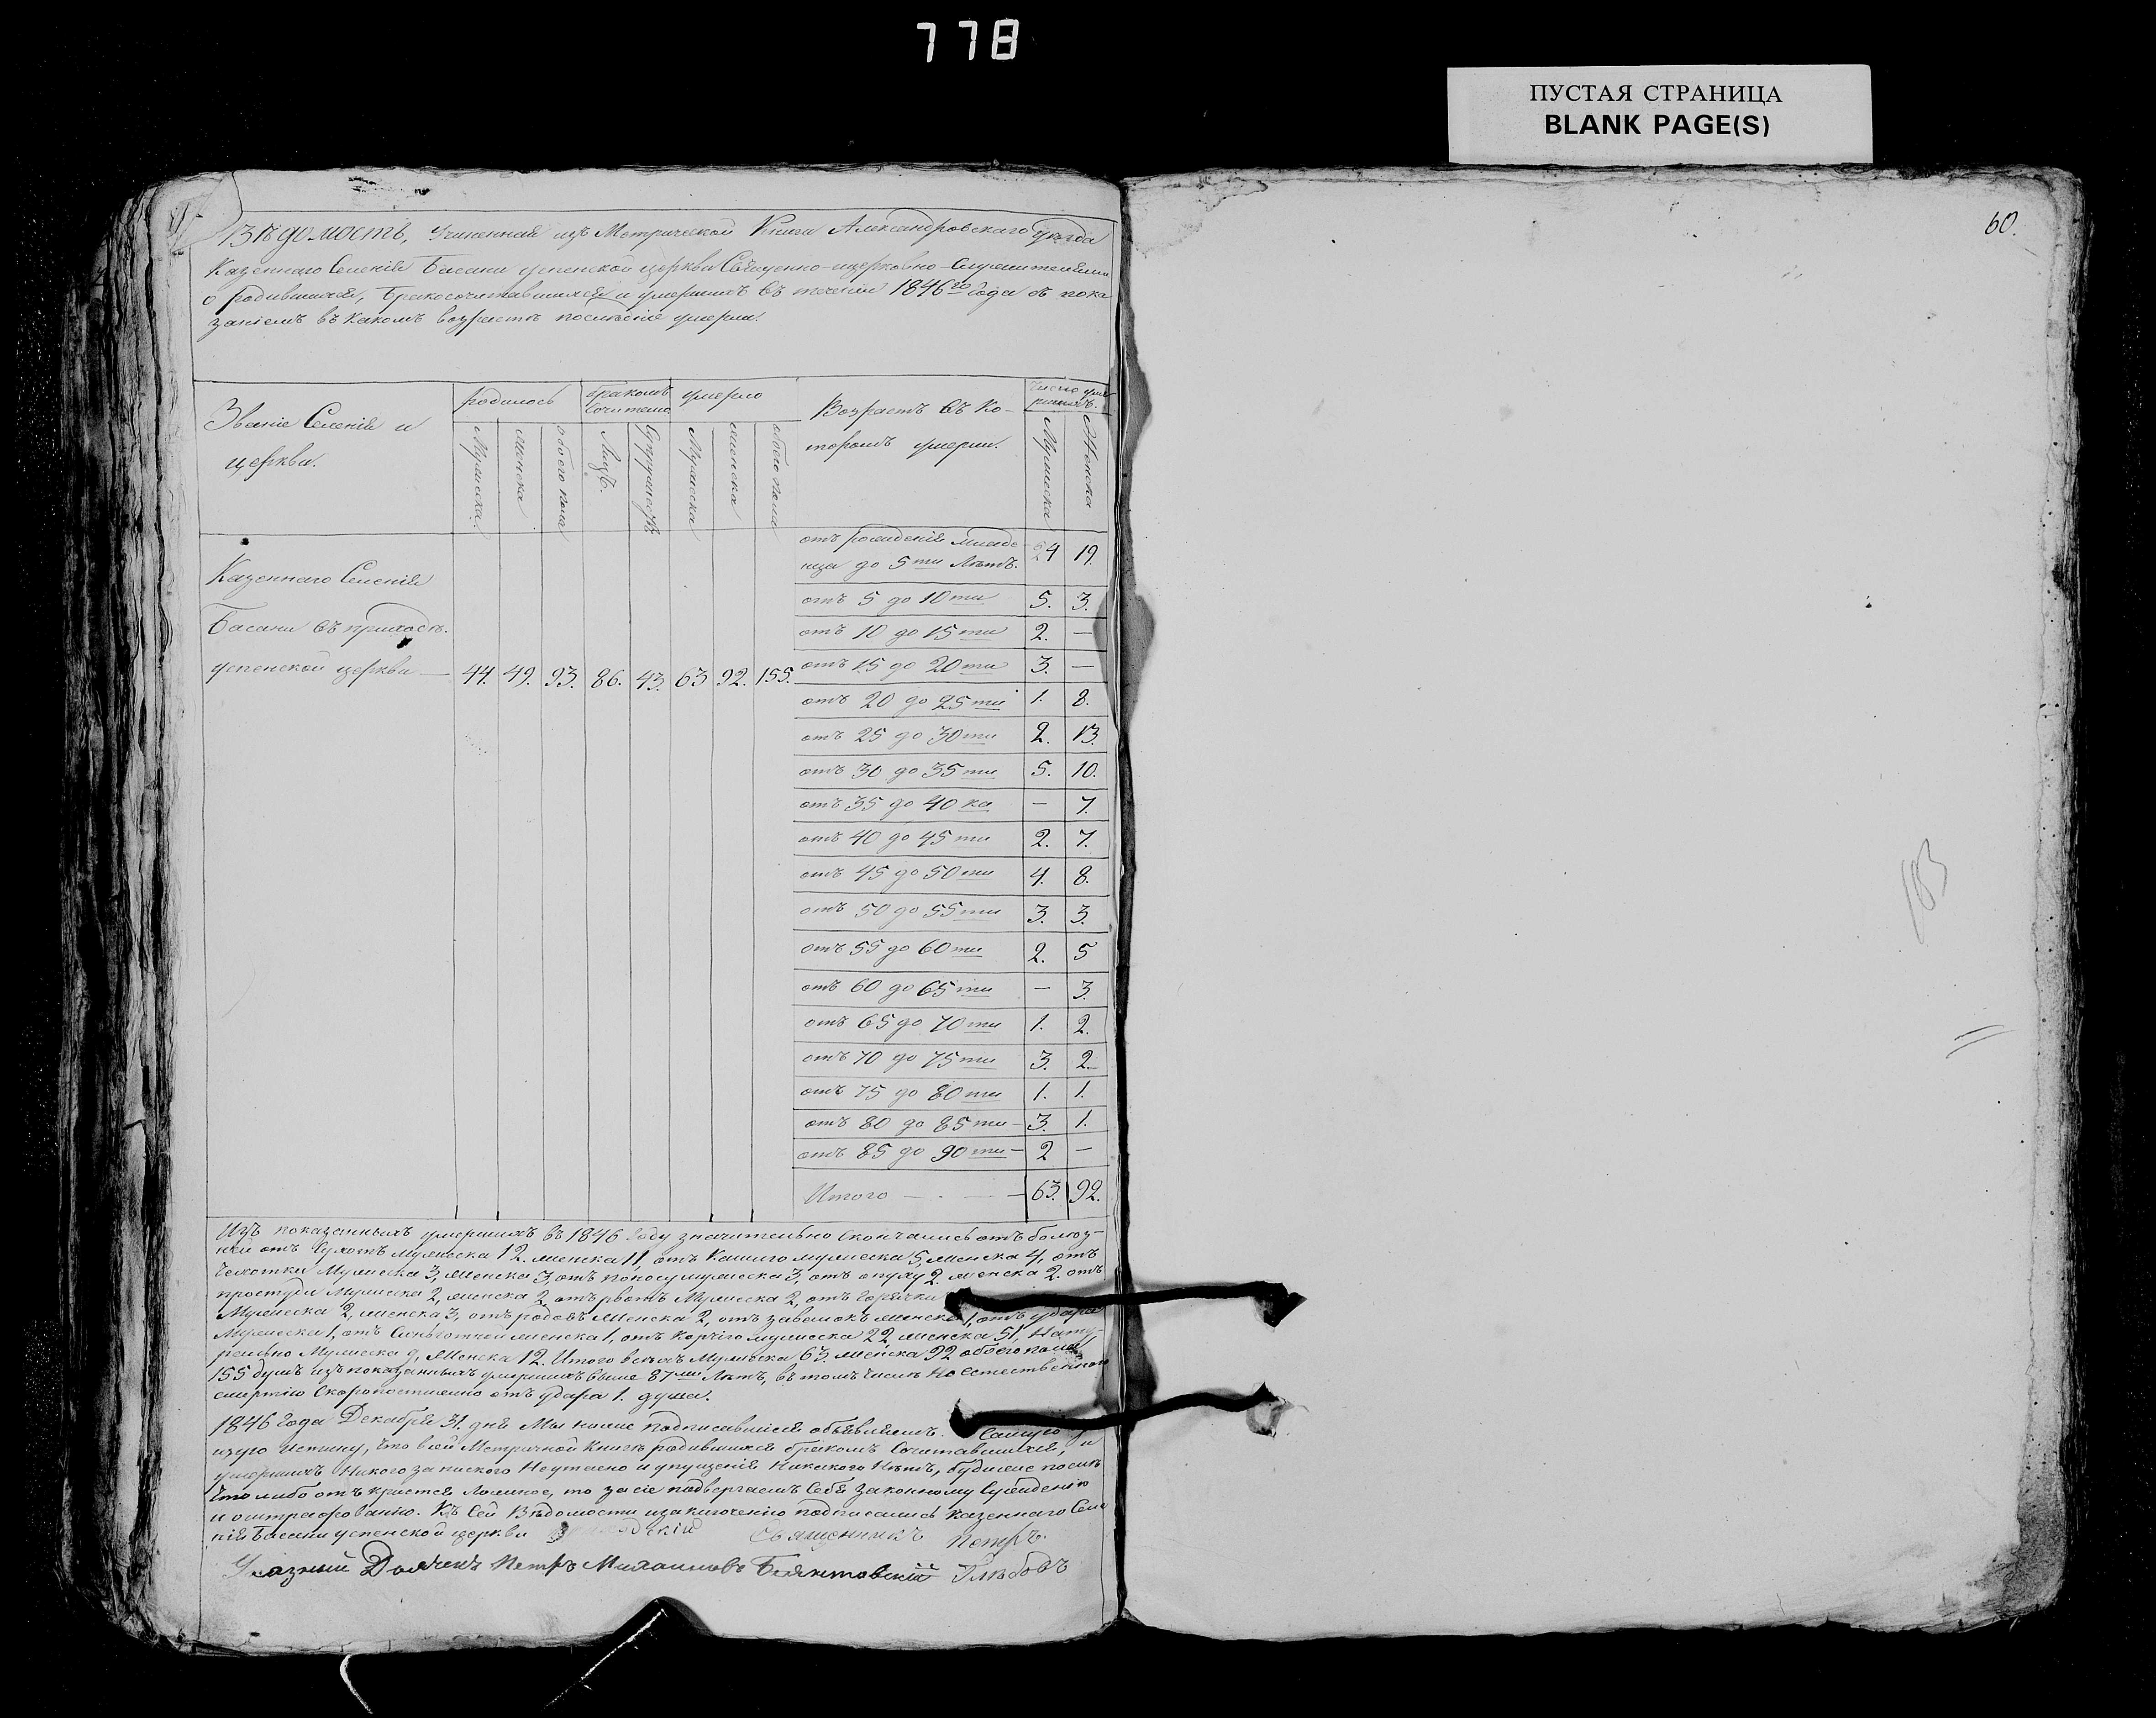 778
ПУСТАЯ СТРАНИЦА
BLANK PAGE(S)
60.
Вѣдомость, Учиненная изъ Метрической Книги Александровскаго уѣзда
Казеннаго Селенія Басани успенской церкви Священно-церковно-Служителями
о родившихся, Бракосочитавшихся и умершихъ въ теченіи 1846го Года съ пока
заніемъ въ какомъ возрастѣ послѣдніе умерли.
Званіе Селенія и
церкви.
родилось
бракомъ
Сочитано
умерло
Возрастъ въ Ко-
торомъ умерли.
Число уме
ршихъ.
Мужеска
женска
обоего пола
Лицъ.
Супружествъ
Мужеска
женска
обоего пола
Мужеска
Женска
Казеннаго Селенія
Басани въ приходѣ.
успенской церкви — 44. 49. 93. 86. 43. 63 92. 155.
отъ рожденія младе-
нца до 5ти Лѣтъ. 24 19.
отъ 5 до 10ти 5. 3.
отъ 10 до 15ти 2. —
отъ 15 до 20ти 3. —
отъ 20 до 25ти 1. 8.
отъ 25 до 30ти 2. 13.
отъ 30 до 35ти 5. 10.
отъ 35 до 40ка — 7.
отъ 40 до 45ти 2. 7.
отъ 45 до 50ти 4. 8.
отъ 50 до 55ти 3. 3.
отъ 55 до 60ти 2. 5
отъ 60 до 65ти — 3.
отъ 65 до 70ти 1. 2.
отъ 70 до 75ти 3. 2.
отъ 75 до 80ти 1. 1.
отъ 80 до 85ти — 3. 1.
отъ 85 до 90ти — 2 —
Итого — 63. 92.
Изъ показанныхъ умершихъ въ 1846 Году значительно Скончались отъ болѣз-
ней отъ Сухотъ мужеска 12. женска 11, отъ Кашлю мужеска 5, женска 4, отъ
чахотки Мужеска 3, женска 3, отъ поносу мужеска 3, отъ опуху 2. женска 2. отъ
простуды Мужеска 2, женска 2, отъ рвотъ Мужеска 2, отъ Горячки
Мужеска 2, женска 3, отъ родовъ женска 2, отъ завалокъ женска 1, отъ удара
Мужеска 1, отъ женска 1, отъ Корчіго мужеска 22, женска 51, Нату-
рально Мужеска 9, женска 12. Итого всѣхъ Мужеска 63. женска 92 обоего пола
155 душъ изъ показанныхъ умершихъ выше 87ми Лѣтъ, въ томъ числѣ
смертію Скоропостижно отъ удара 1. душа.
1846 Года Декабря 31. дня Мы ниже подписавшіеся объявляемъ. Самую
Истину, что въ сей Метричной Книгѣ родившихся бракомъ Сочитавшихся, и
умершихъ Никого Неутаено и упущенія Никакого Нѣтъ, будеже послѣ
что либо отъ кроется Ложное, то за сіе подвергаемъ Себя Законному Сужденію
и оштрафованію. Къ Сей Вѣдомости и заключенію подписались Казеннаго Селе
нія Басани успенской церкви Священникъ Петръ
Указный Дьячекъ Петръ Михайловъ Глѣбовъ
103